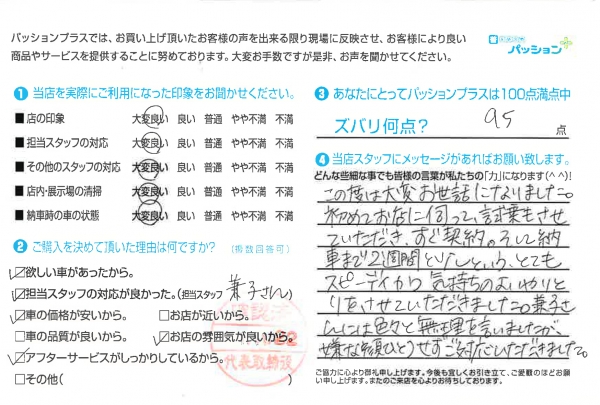 パッションプラスでは、お買い上げ頂いたお客様の声を出来る限り現場に反映させ、お客様により良い
商品やサービスを提供することに努めております。大変お手数ですが是非、お声を聞かせてください。
パッション
❶ 当店を実際にご利用になった印象をお聞かせください。
■ 店の印象 大変良い 良い 普通 やや不満 不満
■ 担当スタッフの対応 大変良い 良い 普通 やや不満 不満
■ その他のスタッフの対応 大変良い 良い 普通 やや不満 不満
■ 店内・展示場の清掃 大変良い 良い 普通 やや不満 不満
■ 納車時の車の状態 大変良い 良い 普通 やや不満 不満
❷ ご購入を決めて頂いた理由は何ですか? (複数回答可)
☑欲しい車があったから。
☑担当スタッフの対応が良かった。(担当スタッフ 兼子さん)
☑車の価格が安いから。 □お店が近いから。
□車の品質が良いから。 ☑お店の雰囲気が良いから。
☑アフターサービスがしっかりしているから。
□その他(
代表取締役
❸ あなたにとってパッションプラスは100点満点中
ズバリ何点? 95 点
❹ 当店スタッフにメッセージがあればお願い致します。
どんな些細な事でも皆様の言葉が私たちの「力」になります(^^)!
この度は大変お世話になりました。
初めてお店に伺って、試乗もさせ
ていただき、すぐ契約。そして納
車まで2週間と少しという、とても
スピーディかつ 気持ちのよいやりと
りをさせていただきました。兼子さ
んには色々と無理を言いましたが、
嫌な顔ひとつせずご対応いただきました。
ご協力に心より御礼申し上げます。今後も宜しくお引き立て、ご愛顧のほどお願
い申し上げます。またのご来店を心よりお待ちしております。